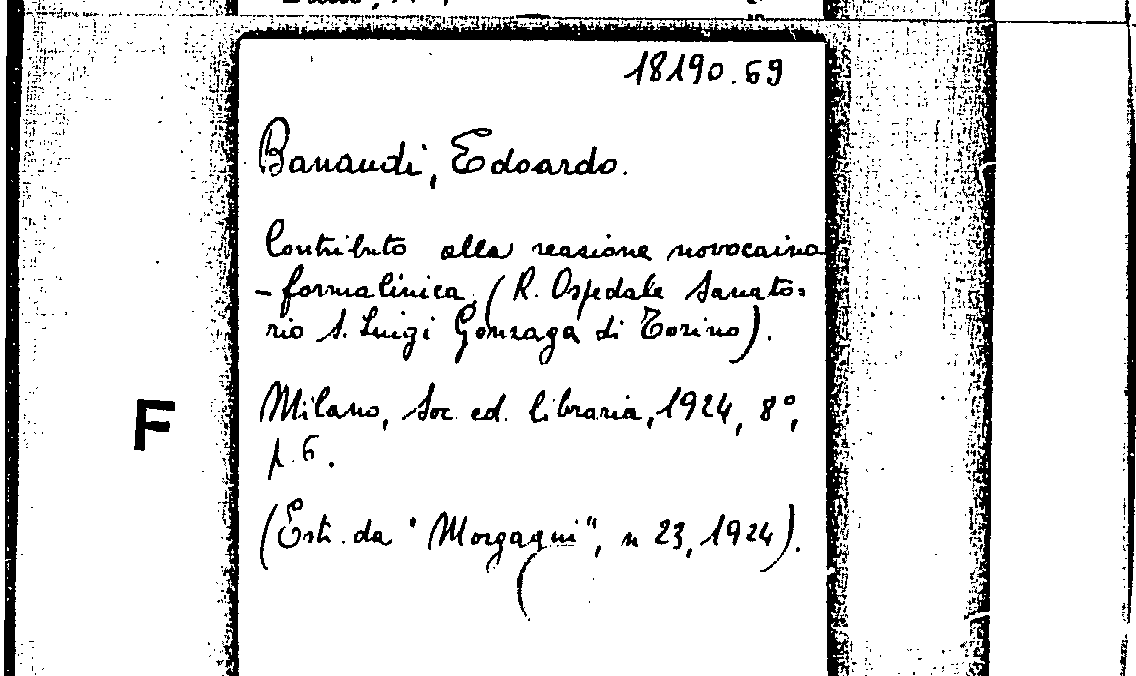 18190.69
Banaudi, Edoardo.
Contributo alla reazione novocaina
- formalinica. (R. Ospedale Sanato=
rio S. Luigi Gonzaga di Torino).
Milano, Soc. ed. libraria, 1924, 8°,
p. 6.
F
(Estr. da "Morgagni", n 23, 1924).